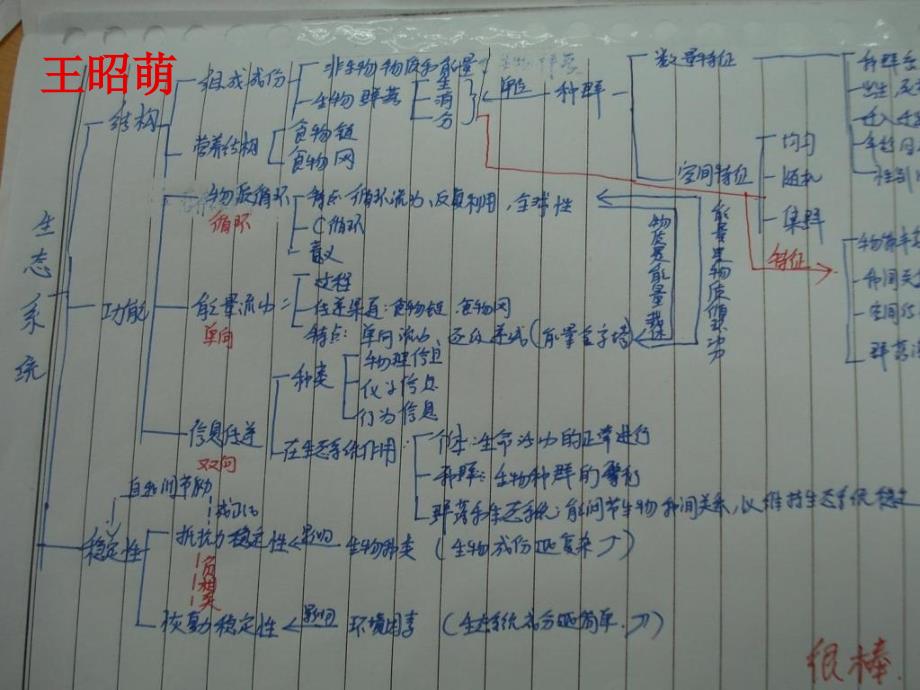 王昭萌
生态系统
结构
组成成份
非生物物质和能量
生物群落
生
消
分
单位
种群
数量特征
空间特征
均匀
随机
集群
营养结构
食物链
食物网
功能
物质循环
循环
特点:循环流动、反复利用,全球性
C循环
意义
物质是能量载体
能量是物质循环动力
特征
能量流动
单向
过程
传递渠道:食物链.食物网
特点:单向流动、逐级递减(能量金字塔)
信息传递
双向
种类
物理信息
化学信息
行为信息
在生态系统作用:
个体:生命活动的正常进行
种群:生物种群的繁衍
群落和生态系统:能调节生物种间关系,以维持生态系统稳定
稳定性
自我调节能力
成正比
抵抗力稳定性
影响
生物种类
(生物成份越复杂↗)
负相关
恢复力稳定性
影响
环境因素
(生态系统成分越简单.↗)
很棒.